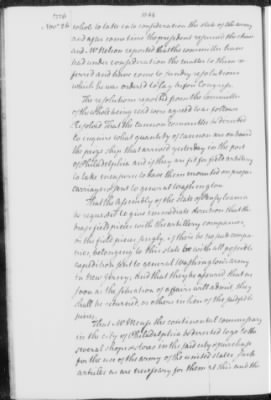 1776
Nov. 26 whole to take into consideration the state of the army
and after some time the president resumed the chair
and Mr Nelson reported that the committee have
had under consideration the matter to them re
ferred and have come to sundry resolutions
which he was ordered to lay before Congress.
The resolutions reported from the Committee
of the whole being read were agreed to as follows
Resolved That the cannon committee be directed
to enquire what quantity of cannon are on board
the prize ship that arrived yesterday in the port
of Philadelphia and if they are fit for field artillery
to take measures to have them mounted on proper
carriages & sent to general Washington
That the Assembly of the state of Pensylvania
be requested to give immediate direction that the
brass field pieces with the artillery companies,
or the field pieces singly, if there be no such compa
nies, belonging to this state be with all possible
expedition sent to general Washington's army
in New Jersey, And that they be assured that as
soon as the situation of affairs will admit, they
shall be returned, or others in lieu of the said field
pieces.
That Mr Mease the continental commissary
in the city of Philadelphia be directed to go to the
several shops & stores in the said city & purchase
for the use of the army of the united states, such
articles as are necessary for them at this and the